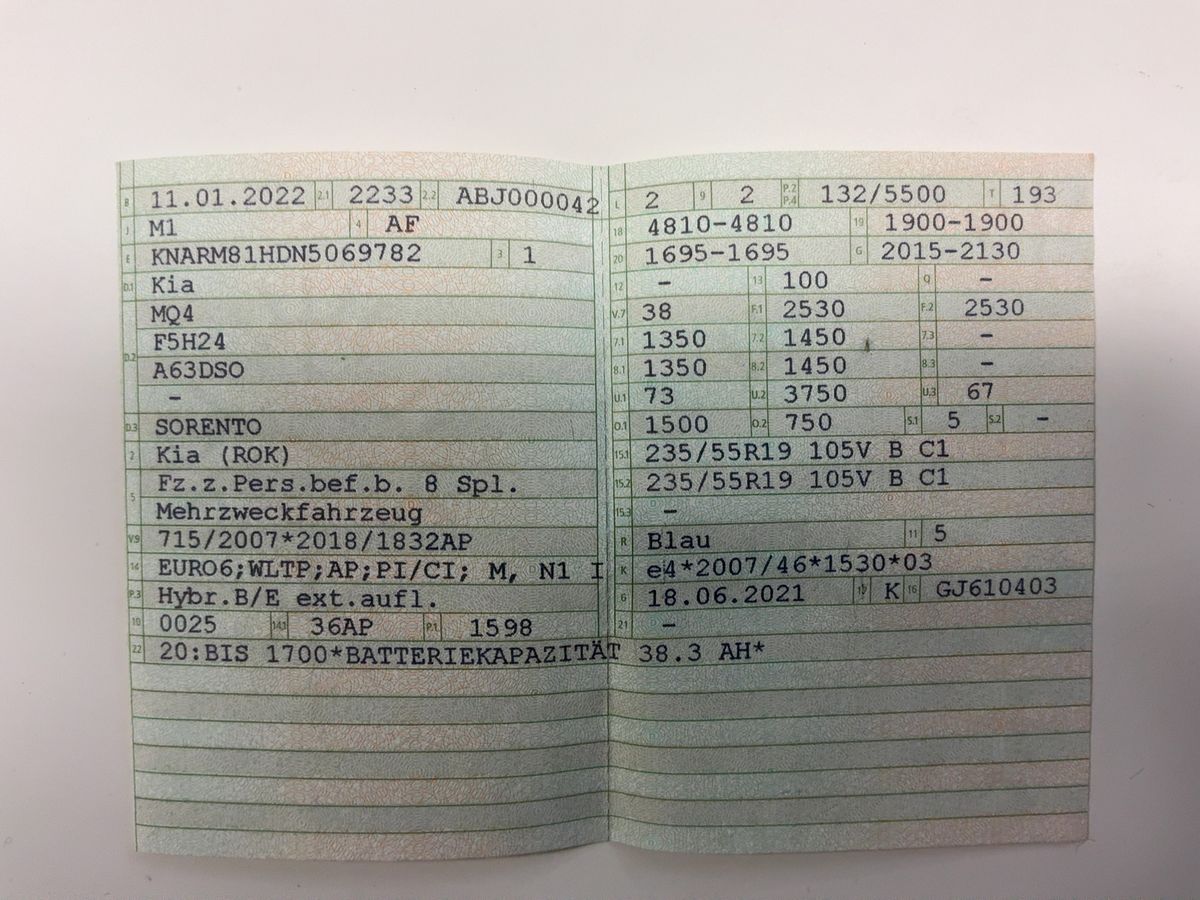 B 11.01.2022 2.1 2233 2.2 ABJ000042
J M1 4 AF
E KNARM81HDN5069782 3 1
D.1 Kia
MQ4
F5H24
D.2 A63DSO
-
D.3 SORENTO
2 Kia (ROK)
5 Fz.z.Pers.bef.b. 8 Spl.
Mehrzweckfahrzeug
V.9 715/2007*2018/1832AP
14 EURO6;WLTP;AP;PI/CI; M, N1 I
P.3 Hybr.B/E ext.aufl.
10 0025 14.1 36AP P.1 1598
22 20:BIS 1700*BATTERIEKAPAZITÄT 38.3 AH*
L 2 9 2 P.2 P.4 132/5500 T 193
18 4810-4810 19 1900-1900
20 1695-1695 G 2015-2130
12 - 13 100 Q -
V.7 38 F.1 2530 F.2 2530
7.1 1350 7.2 1450 7.3 -
8.1 1350 8.2 1450 8.3 -
U.1 73 U.2 3750 U.3 67
O.1 1500 O.2 750 S.1 5 S.2 -
15.1 235/55R19 105V B C1
15.2 235/55R19 105V B C1
15.3 -
R Blau 11 5
K e4*2007/46*1530*03
6 18.06.2021 17 K 16 GJ610403
21 -